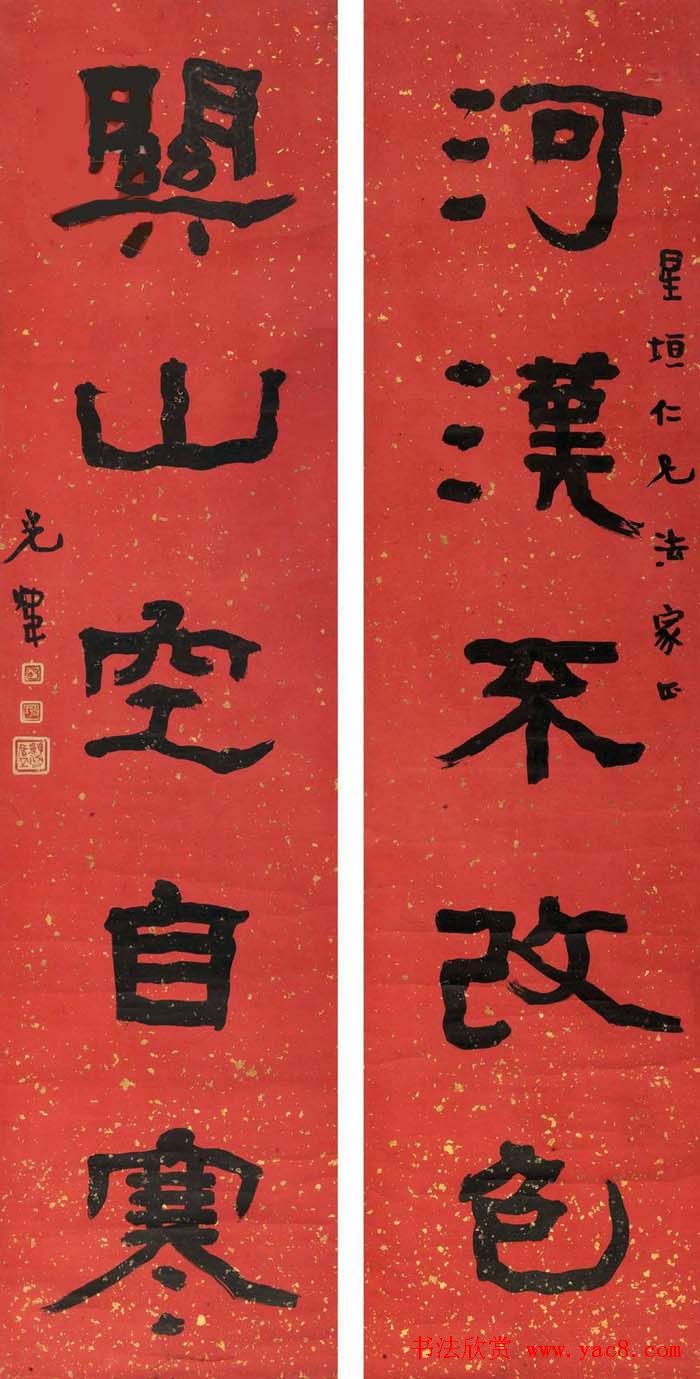 河漢不改色
星垣仁兄法家正
關山空自寒
光煒
书法欣赏 www.yac8.com